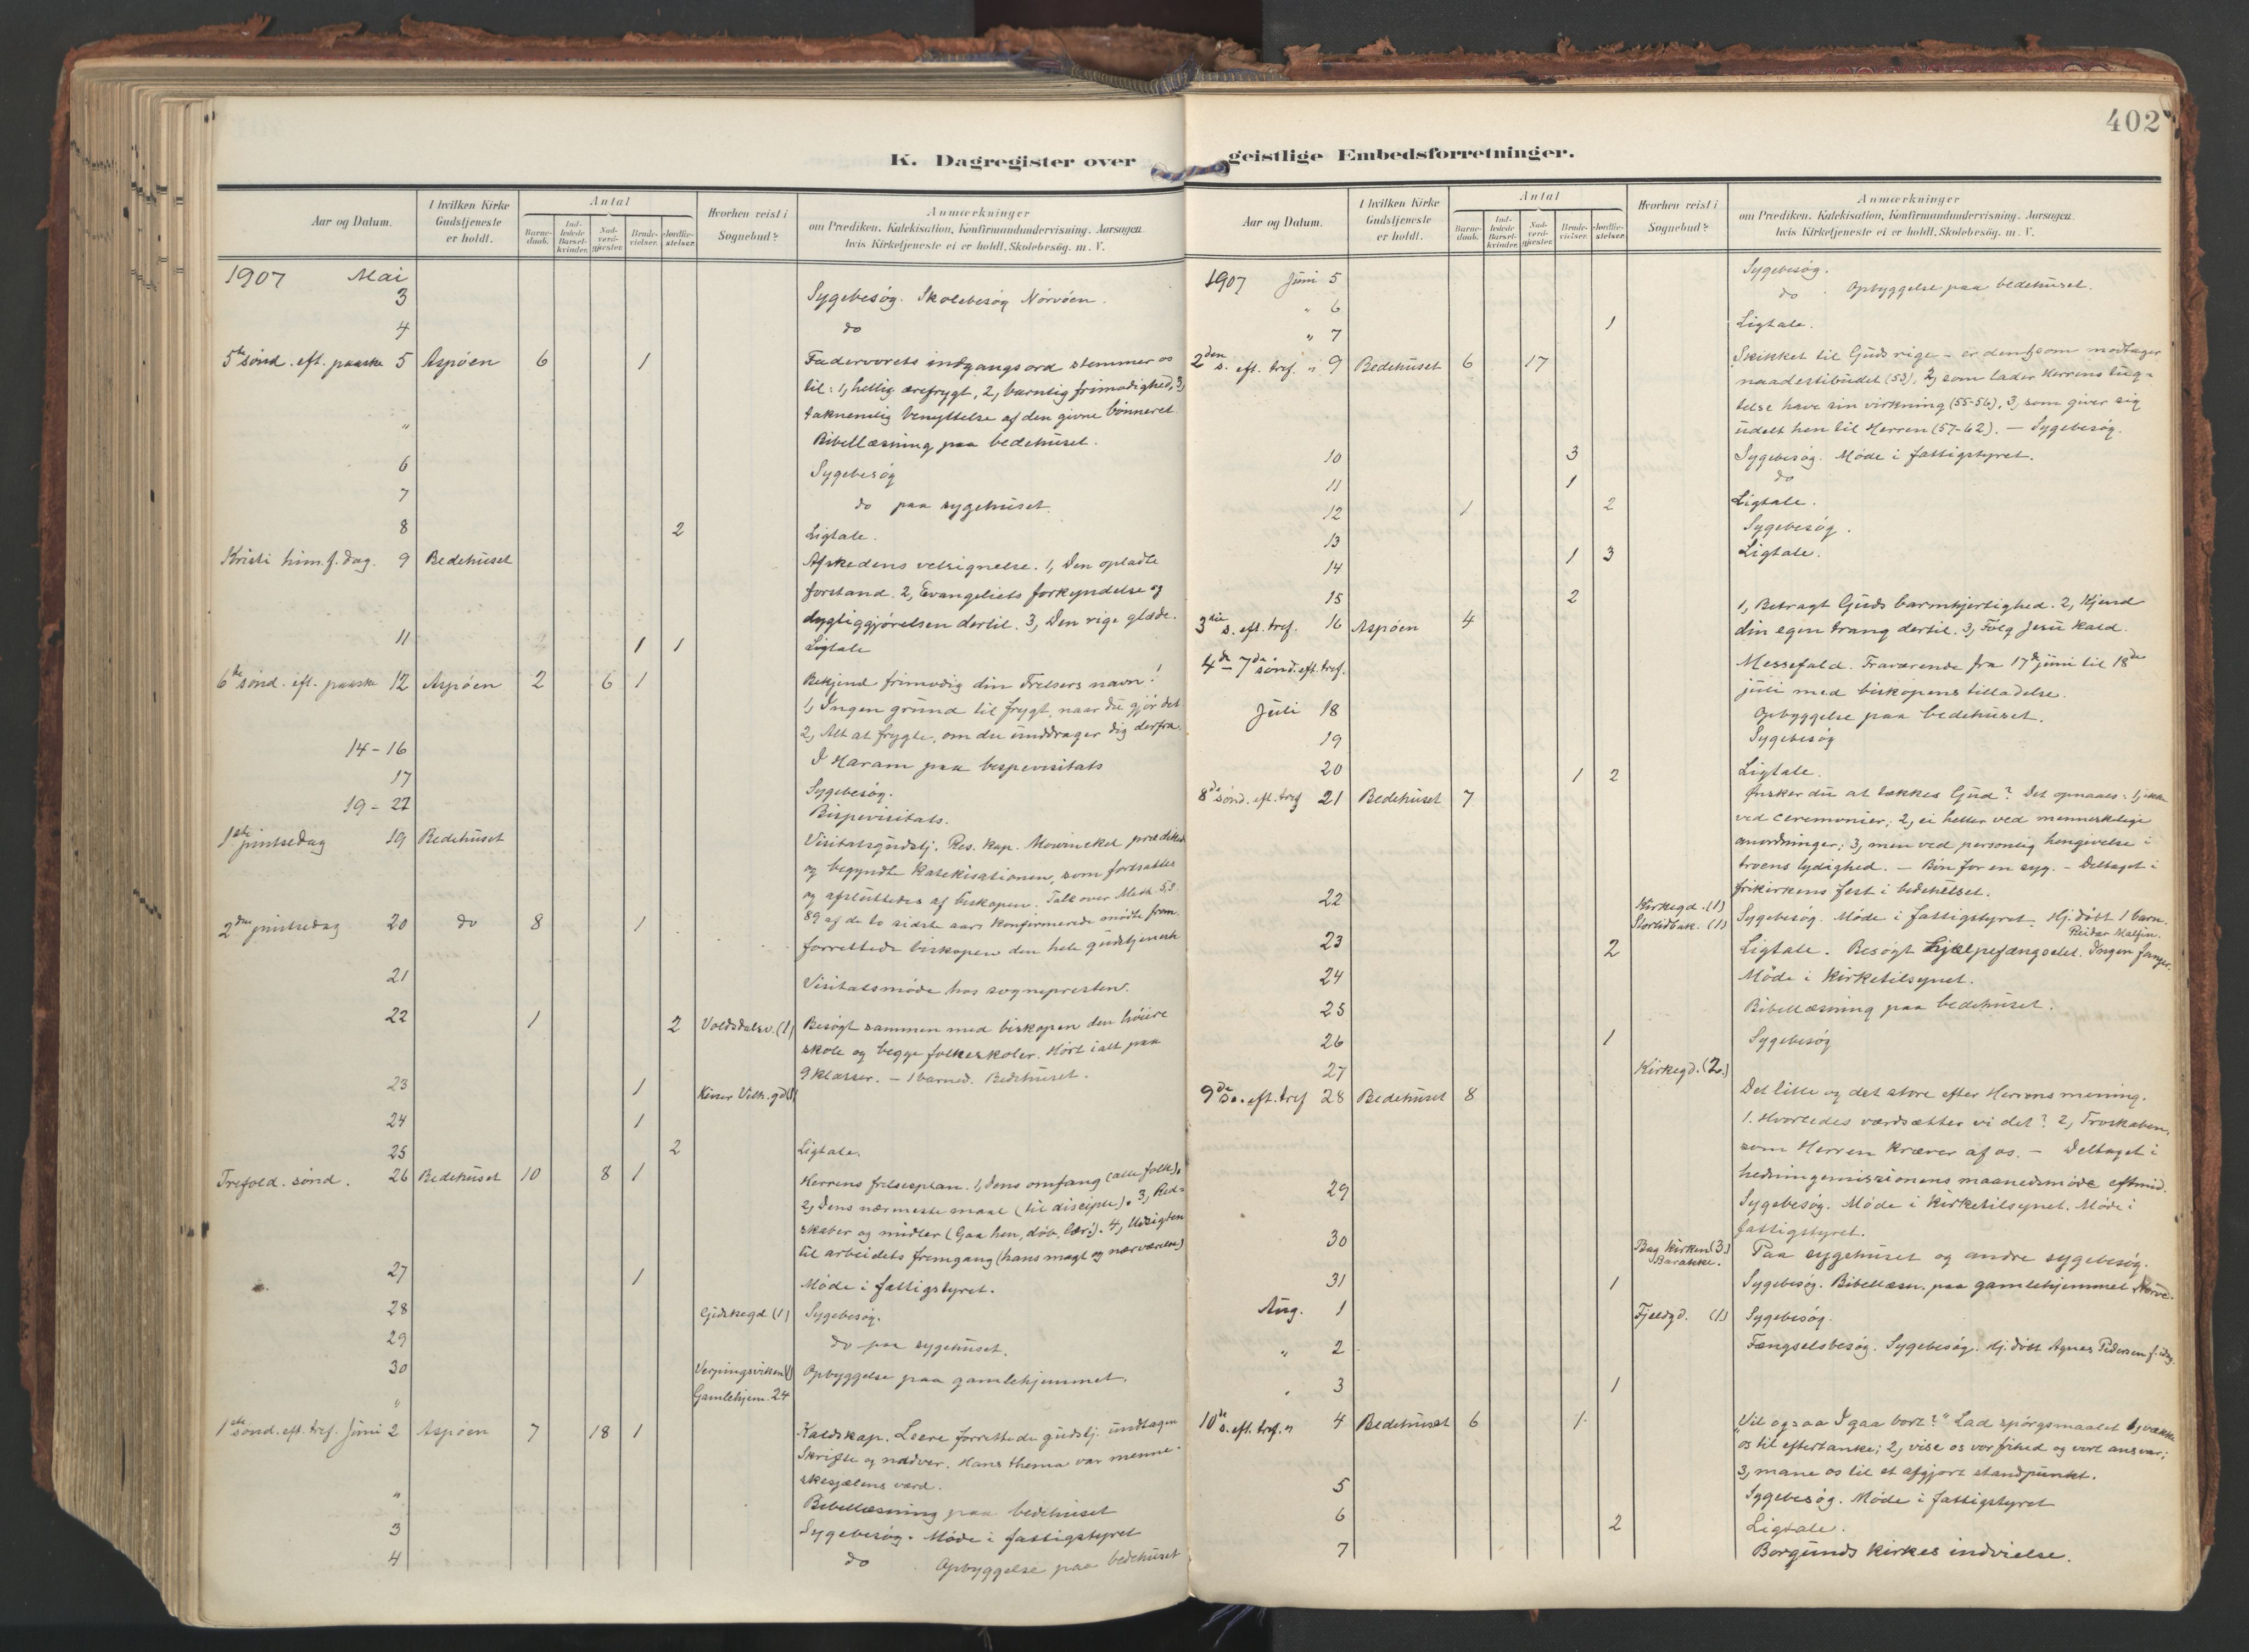 402
K. Dagregister over geistlige Embedsforretninger.
Aar og Datum. I hvilken Kirke Gudstjeneste er holdt. Antal Barnedaab. Indledede Barselkvinder. Nadverdgjester. Brudevielser. Jordfæstelser. Hvorhen reist i Sognebud? Anmærkninger om Prædiken, Katekisation, Konfirmandundervisning, Aarsagen, hvis Kirketjeneste ei er holdt, Skolebesög. m. V.
1907 Mai
3 Sygebesög. Skolebesög Nörvöen.
4 do
5te sönd. eft. paaske 5 Aspöen 6 1 Fadervorets indgangsord stemmer os
til: 1, hellig ærefrygt, 2, barnlig frimodighed, 3,
taknemlig benyttelse af den givne bönneret.
" Bibellæsning paa bedehuset.
6 Sygebesög
7 do paa sygehuset.
8 2 Ligtale.
Kristi him.f. dag. 9 Bedehuset Afskedens velsignelse. 1, Den opladte
forstand. 2, Evangeliets forkyndelse og
dygtiggjörelsen dertil. 3, Den rige glæde.
11 1 1 Ligtale
6te sönd. eft. paaske 12 Aspöen 2 6 1 Bekjend frimodig din Frelsers navn!
1, Ingen grund til frygt, naar du gjör det
2, Alt at frygte, om du unddrager dig derfra.
14-16 I Haram paa bispevisitats
17 Sygebesög.
19-22 Bispevisitats.
1ste pintsedag 19 Bedehuset Visitatsgudstj. Res. kap. Mowinckel prædiked
og begyndte katekisationen, som fortsattes
og afsluttedes af biskopen. Talte over Math. 5,8.
89 af de to sidste aars konfirmerede mödte frem.
2den pintsedag 20 do 8 1 forrettede biskopen den hele gudstjeneste
21 Visitatsmöde hos sognepresten.
22 1 2 Voldsdalsv. (1) Besögt sammen med biskopen den höiere
skole og begge folkeskoler. Hört ialt paa
9 klasser. - 1 barned. Bedehuset.
23 1 Keiser Vilh. gd (1)
24 1
25 2 Ligtale.
Trefold. sönd. 26 Bedehuset 10 8 1 Herrens frelsesplan. 1, Dens omfang (alle folk).
2, Dens nærmeste maal (til disciple). 3, Red-
skaber og midler (Gaa hen, döb, lær!). 4, Udsigten
til arbeidets fremgang (hans magt og nærværelse)
27 1 Möde i fattigstyret.
28 Gjidskegd (1) Sygebesög.
29 do paa sygehuset.
30 Verpingsviken (1) Opbyggelse paa gamlehjemmet.
" Gamlehjem. 24
1ste sönd. eft. tref. Juni 2 Aspöen 7 18 1 Kaldskap. Leere forrettede gudstj. undtagen
Skrifte og nadver. Hans thema var menne-
skesjælens værd.
" Bibellæsning paa bedehuset
3 Sygebesög. Möde i fattigstyret
4 do Opbyggelse paa bedehuset
Aar og Datum. I hvilken Kirke Gudstjeneste er holdt. Antal Barnedaab. Indledede Barselkvinder. Nadverdgjester. Brudevielser. Jordfæstelser. Hvorhen reist i Sognebud? Anmærkninger om Prædiken, Katekisation, Konfirmandundervisning, Aarsagen, hvis Kirketjeneste ei er holdt, Skolebesög. m. V.
1907 Juni 5 Sygebesög.
" 6 do Opbyggelse paa bedehuset.
" 7 1 Ligtale.
2den s. eft. tref. " 9 Bedehuset 6 17 Skikket til Guds rige - er den 1, som modtager
naadestilbudet (53), 2, som lader Herrens tug-
telse have sin virkning (55-56), 3, som giver sig
udelt hen til Herren (57-62). - Sygebesög.
10 3 Sygebesög. Möde i fattigstyret.
11 1 do
12 1 2 Ligtale.
13 Sygebesög.
14 1 3 Ligtale.
15 2
3die s. eft. tref. 16 Aspöen 4 1, Betragt Guds barmhjertighed. 2, Kjend
din egen trang dertil. 3, Fölg Jesu kald.
4de - 7de sönd. eft. tref. Messefald. Fraværende fra 17de juni til 18de
juli med biskopens tilladelse.
Juli 18 Opbyggelse paa bedehuset.
19 Sygebesög
20 1 2 Ligtale.
8de sönd. eft. tref 21 Bedehuset 7 Önsker du at tækkes Gud? Det opnaaes: 1, ikke
ved ceremonier; 2, ei heller ved menneskelige
anordninger; 3, men ved personlig hengivelse i
troens lydighed. - Bön for en syg. - Deltaget i
frikirkens fest i bedehuset.
22 Kirkegd. (1) Storlidbak. (1) Sygebesög. Möde i fattigstyret. Hj. döbt 1 barn.
Reidar Malfin.
23 2 Ligtale. Besögt hjælpefængselet. Ingen fanger.
24 Möde i kirketilsynet.
25 Bibellæsning paa bedehuset.
26 1 Sygebesög
27 Kirkegd. (2.)
9de s. eft. tref 28 Bedehuset 8 Det lille og det store efter Herrens mening.
1. Hvorledes værdsætter vi det? 2, Troskaben,
som Herren kræver af os. - Deltaget i
hedningemissionens maanedsmöde eftmid.
29 Sygebesög. Möde i kirketilsynet. Möde i
fattigstyret.
30 Bag kirken (3.) Barakke. Paa sygehuset og andre sygebesög.
31 1 Sygebesög. Bibellæsn. paa gamlehjemmet Nörve.
Aug. 1 Fjeldgd. (1) Sygebesög.
" 2 Fængselsbesög. Sygebesög. Hj. döbt Agnes Pedersen f. idag.
" 3 1
10de s. eft. tref. " 4 Bedehuset 6 1 "Vil ogsaa I gaa bort?" Lad spörgsmaalet 1, vække
os til eftertanke; 2, vise os vor frihed og vort ansvar;
3, mane os til et afgjort standpunkt.
5 Sygebesög. Möde i fattigstyret
6 2 Ligtale.
7 Borgunds kirkes indvielse.